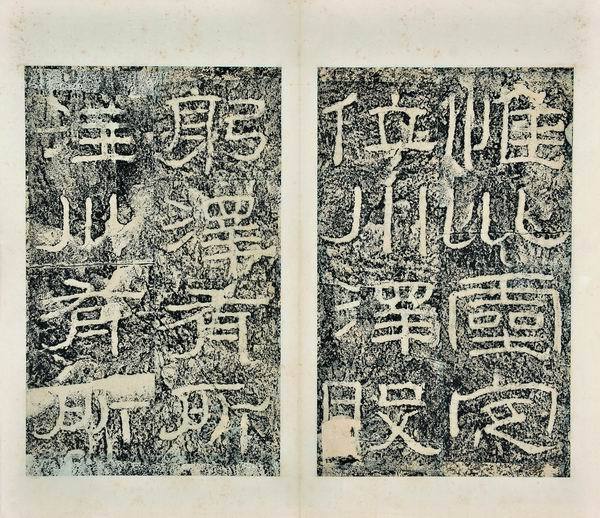 惟坤靈定
位川澤股
躬澤有所
注川有所